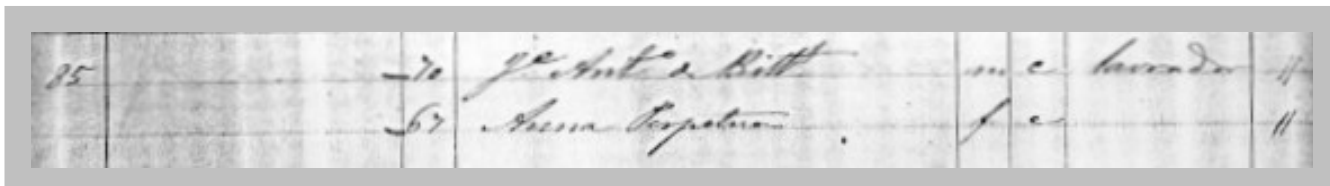 85 70 Je Anto de Bittt m c lavrador "
67 Anna Perpetua f c "